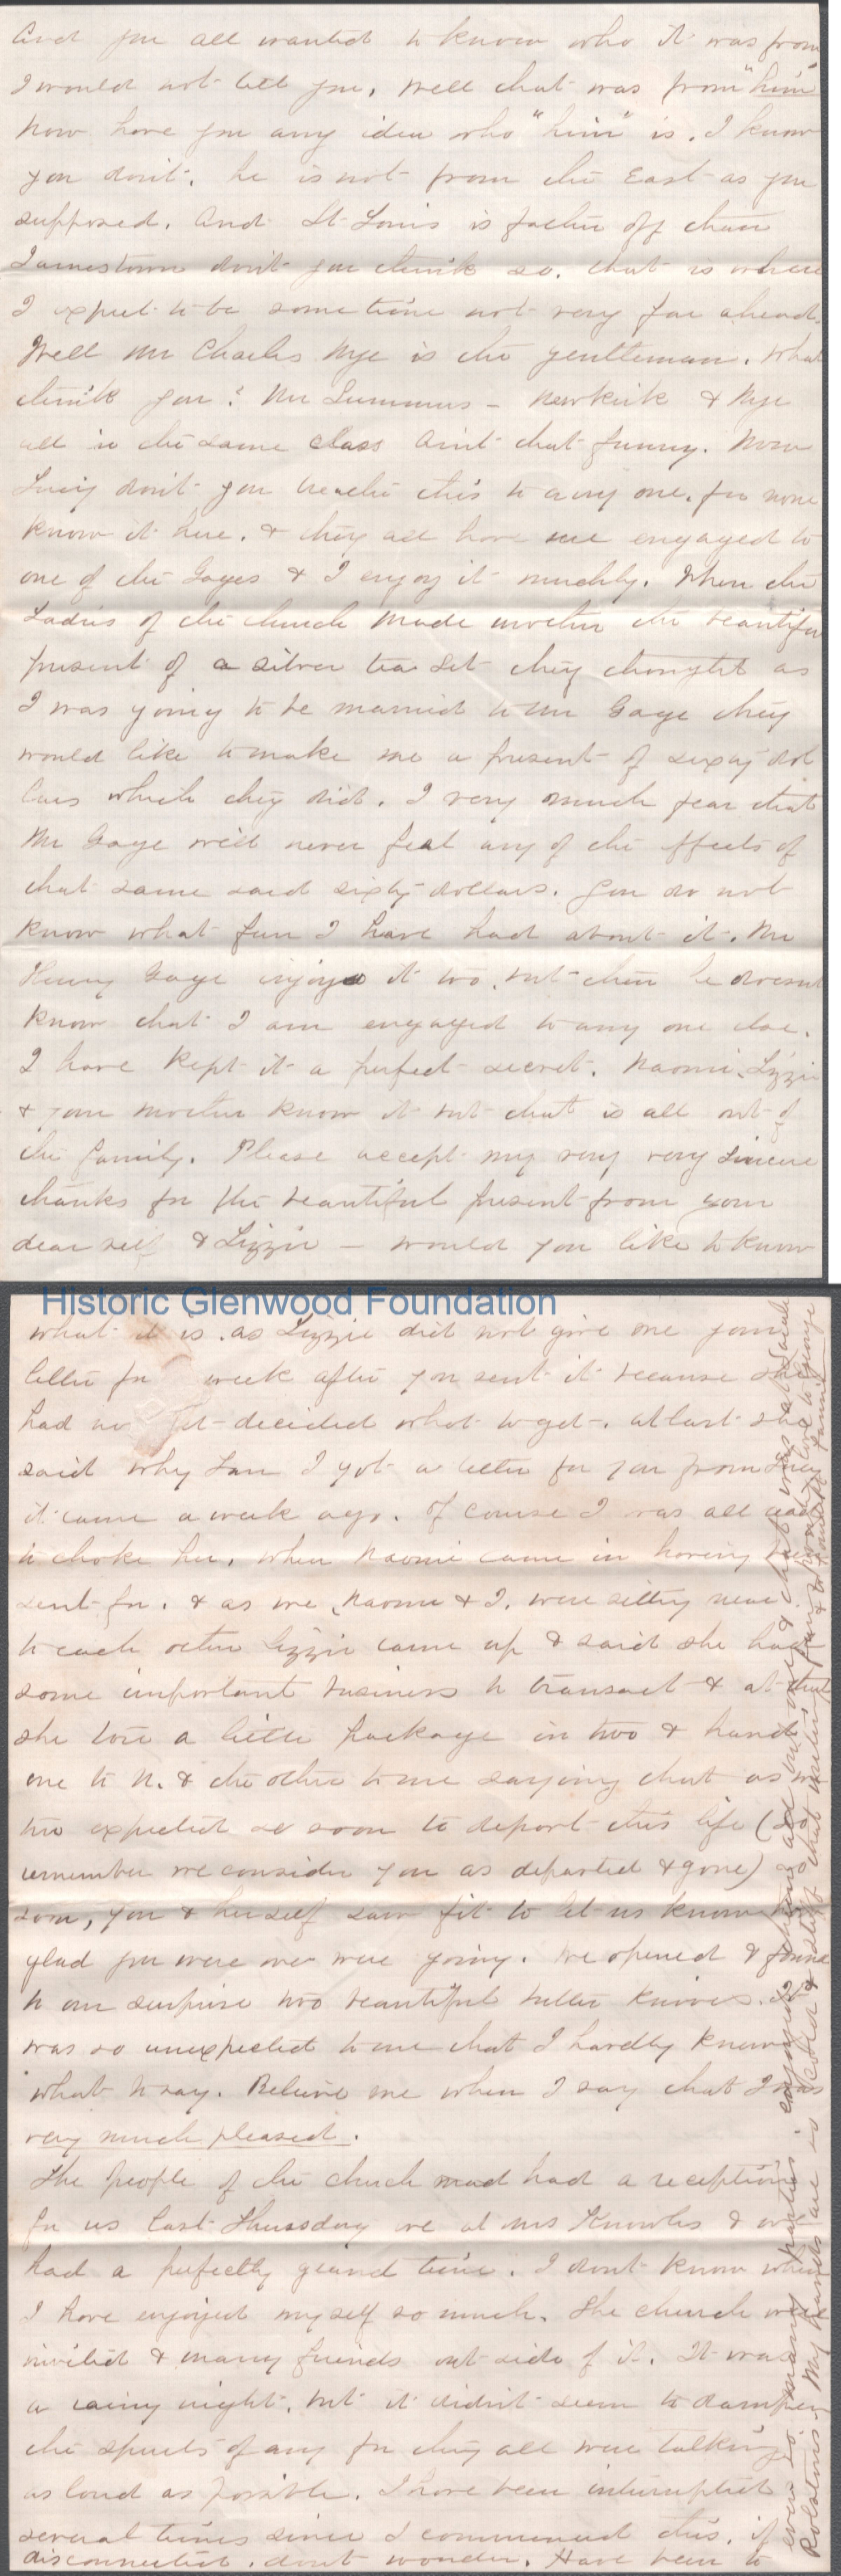 And you all wanted to know who it was from
I would not tell you, Well that was from "him"
Now have you any idea who "him" is. I know
you don't. he is not from the East as you
supposed. And St Louis is farther off than
Jamestown don't you think so. that is where
I expect to be some time not very far ahead.
Well Mr Charles Nye is the gentleman. What
think you? Mr Lummus - Newkirk & Nye
all in the same class Aint that funny. Now
Lucy don't you breathe this to any one. for none
know it here. & they all have me engaged to
one of the Gages & I enjoy it muchly. When the
Ladies of the church made mother the beautiful
present of a silver tea set they thought as
I was going to be married to Mr Gage they
would like to make me a present of sixty dol
lars which they did. I very much fear that
Mr Gage will never feel any of the effects of
that same said sixty dollars. You do not
know what fun I have had about it. Mr
Henry Gage enjoys it too, but then he doesnt
know that I am engaged to any one else.
I have kept it a perfect secret. Naomi, Lizzie
& your mother know it but that is all out of
the family. Please accept my very very sincere
thanks for the beautiful present from your
dear self & Lizzie - would you like to know
Historic Glenwood Foundation
what it is. as Lizzie did not give me your
letter for week after you sent it because she
had not yet decided what to get. at last she
said why I got a letter for you from Lucy
it came a week ago. Of course I was all ready
to choke her, when Naomi came in having been
sent for. & as we, Naomi & I, were sitting near
to each other Lizzie came up & said she had
some important business to transact & at that
she tore a little package in two & hand
one to N. & the other to me saying that as we
two expected so soon to depart this life (so
remember we consider you as departed & gone) so
soon, you & herself saw fit to let us know how
glad you were we were going. We opened & found
to our surprise two beautiful butter knives. It
was so unexpected to me that I hardly knew
what to say. Believe me when I say that I was
very much pleased.
The people of the church mad had a reception
for us last Thursday eve at Mrs Knowles & we
had a perfectly grand time. I dont know when
I have enjoyed myself so much. The church were
invited & many friends out side of it. It was
a rainy night, but it didn't seem to dampen
the spirits of any for they all were talking
as loud as possible. I have been interrupted
several times since I commenced this, if
disconnected, dont wonder. Have been to
ever so many parties - enjoyed them all but one & that was at
Rolstons My hands are so cold & stiff that